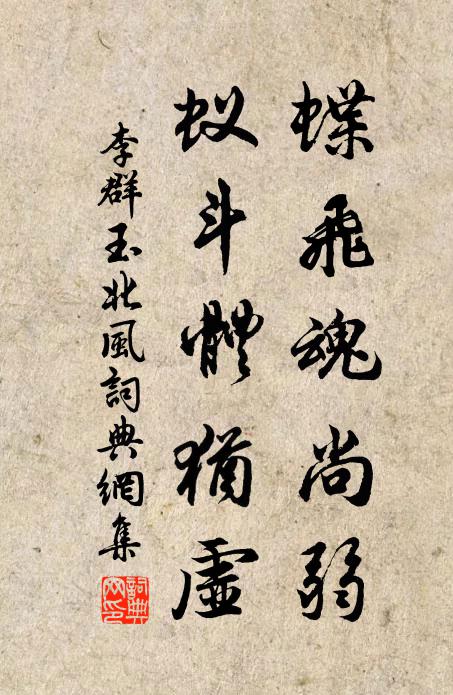 蝶飛魂尚弱
蚁斗體猶虛
李群玉北風詞典網集
詞典网印